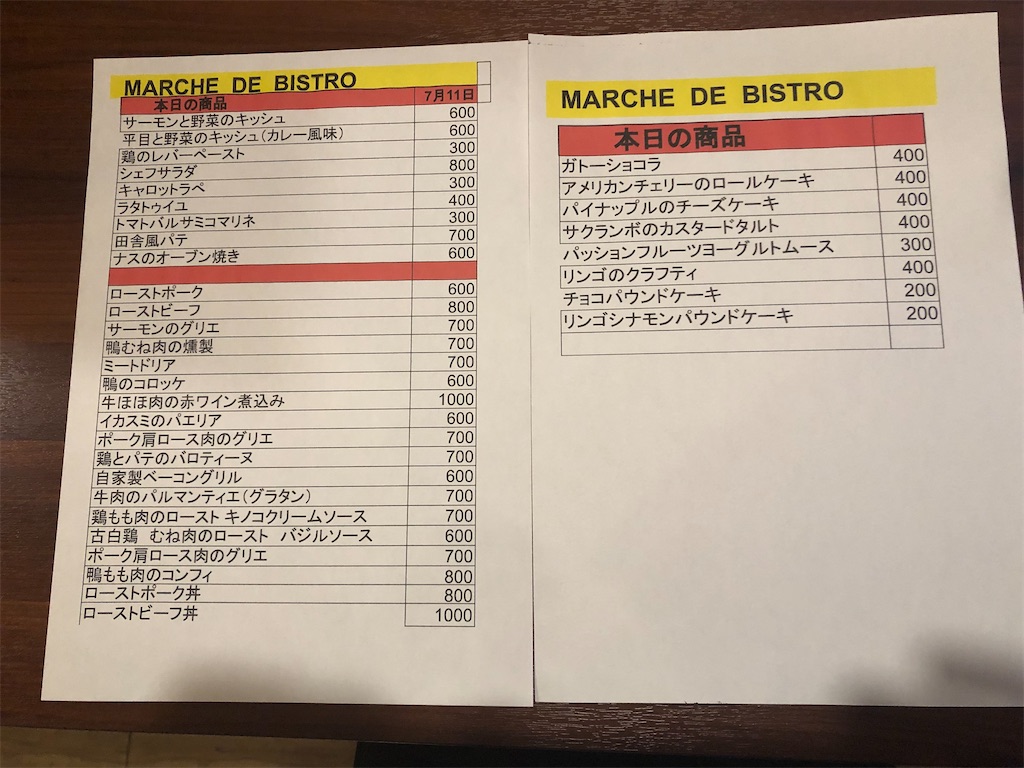 MARCHE DE BISTRO
本日の商品 7月11日
サーモンと野菜のキッシュ 600
平目と野菜のキッシュ(カレー風味) 600
鶏のレバーペースト 300
シェフサラダ 800
キャロットラペ 300
ラタトゥイユ 400
トマトバルサミコマリネ 300
田舎風パテ 700
ナスのオーブン焼き 600
ローストポーク 600
ローストビーフ 800
サーモンのグリエ 700
鴨むね肉の燻製 700
ミートドリア 700
鴨のコロッケ 600
牛ほほ肉の赤ワイン煮込み 1000
イカスミのパエリア 600
ポーク肩ロース肉のグリエ 700
鶏とパテのバロティーヌ 700
自家製ベーコングリル 600
牛肉のパルマンティエ(グラタン) 700
鶏もも肉のロースト キノコクリームソース 700
古白鶏 むね肉のロースト バジルソース 600
ポーク肩ロース肉のグリエ 700
鴨もも肉のコンフィ 800
ローストポーク丼 800
ローストビーフ丼 1000
MARCHE DE BISTRO
本日の商品
ガトーショコラ 400
アメリカンチェリーのロールケーキ 400
パイナップルのチーズケーキ 400
サクランボのカスタードタルト 400
パッションフルーツヨーグルトムース 300
リンゴのクラフティ 400
チョコパウンドケーキ 200
リンゴシナモンパウンドケーキ 200